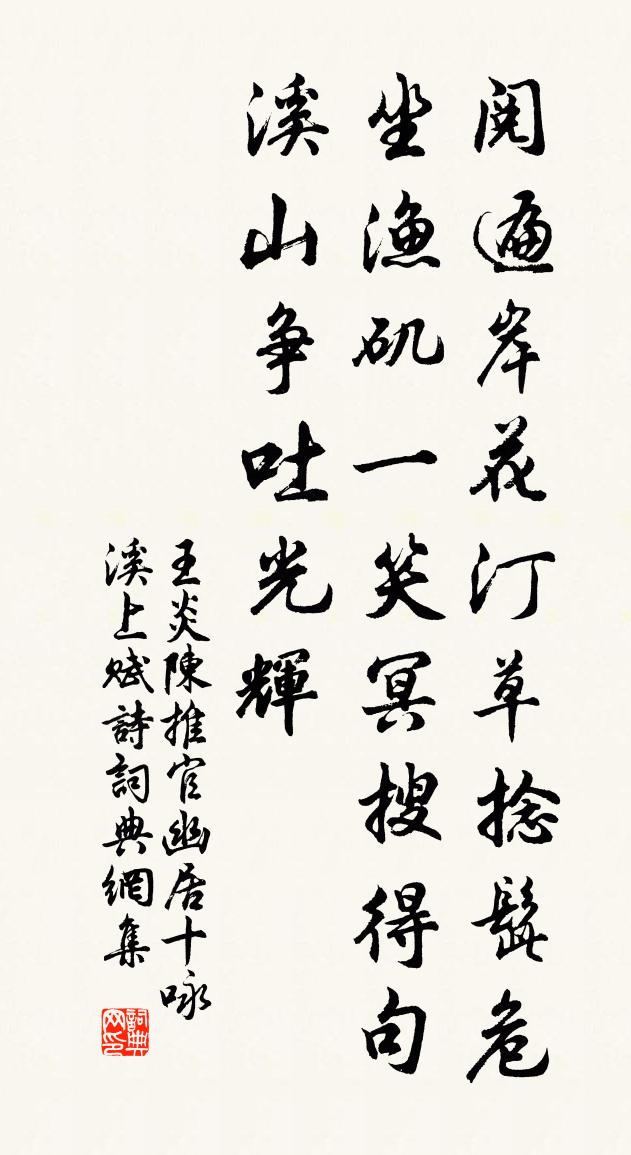 閱遍岸花汀草捻髭危
坐漁矶一笑冥搜得句
溪山争吐光輝
王炎陳推官幽居十咏
溪上賦詩詞典網集
詞典网印